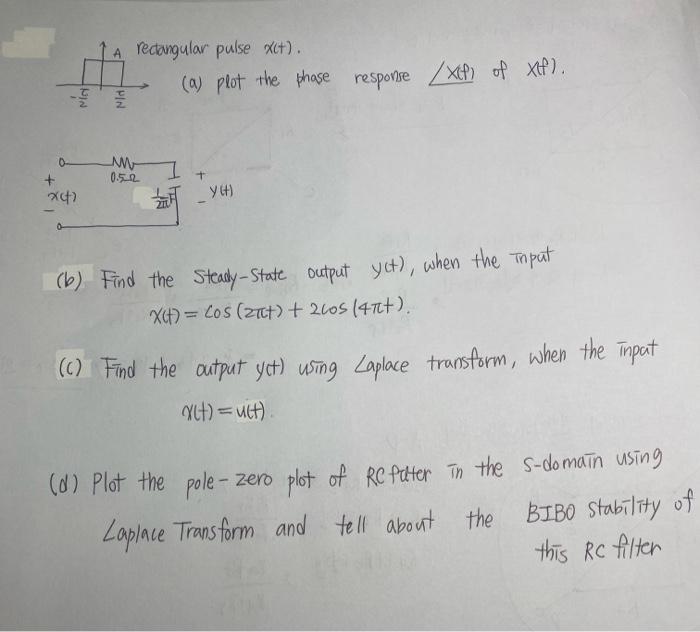 A rectangular pulse x(t).
-τ/2 τ/2
(a) plot the phase response ∠X(f) of X(f).
+ x(t) -
0.5Ω
1/2π F
+ y(t) -
(b) Find the Steady-State output y(t), when the input
x(t) = cos(2πt) + 2cos(4πt).
(c) Find the output y(t) using Laplace transform, when the input
x(t) = u(t).
(d) Plot the pole-zero plot of RC filter in the s-domain using
Laplace Transform and tell about the BIBO stability of
this RC filter